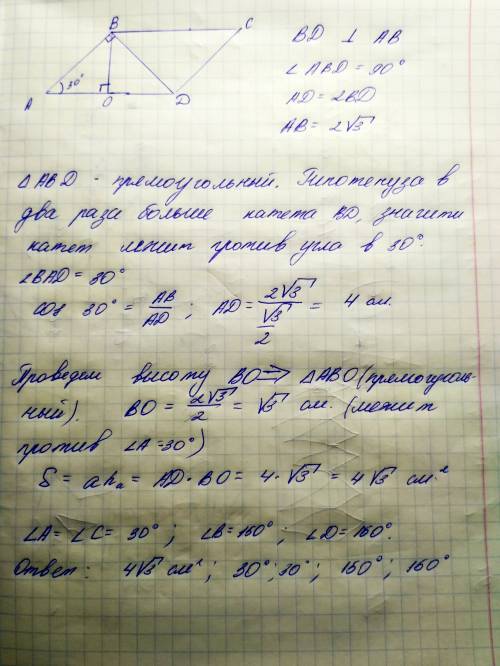 B
C
BD ⊥ AB
∠ABD = 90°
30°
A
O
D
AD = 2BD
AB = 2√3
△ABD - прямоугольный. Гипотенуза в
два раза больше катета BD, значит
катет лежит против угла в 30°.
∠BAD = 30°
cos 30° = AB/AD ; AD = 2√3/(√3/2) = 4 см.
Проведем высоту BO ⇒ △ABO (прямоуголь-
ный). BO = 2√3/2 = √3 см. (лежит
против ∠A = 30°)
S = ahₐ = AD · BO = 4 · √3 = 4√3 см²
∠A = ∠C = 30° ; ∠B = 150° ; ∠D = 150°.
Ответ: 4√3 см² ; 30° ; 30° ; 150° ; 150°